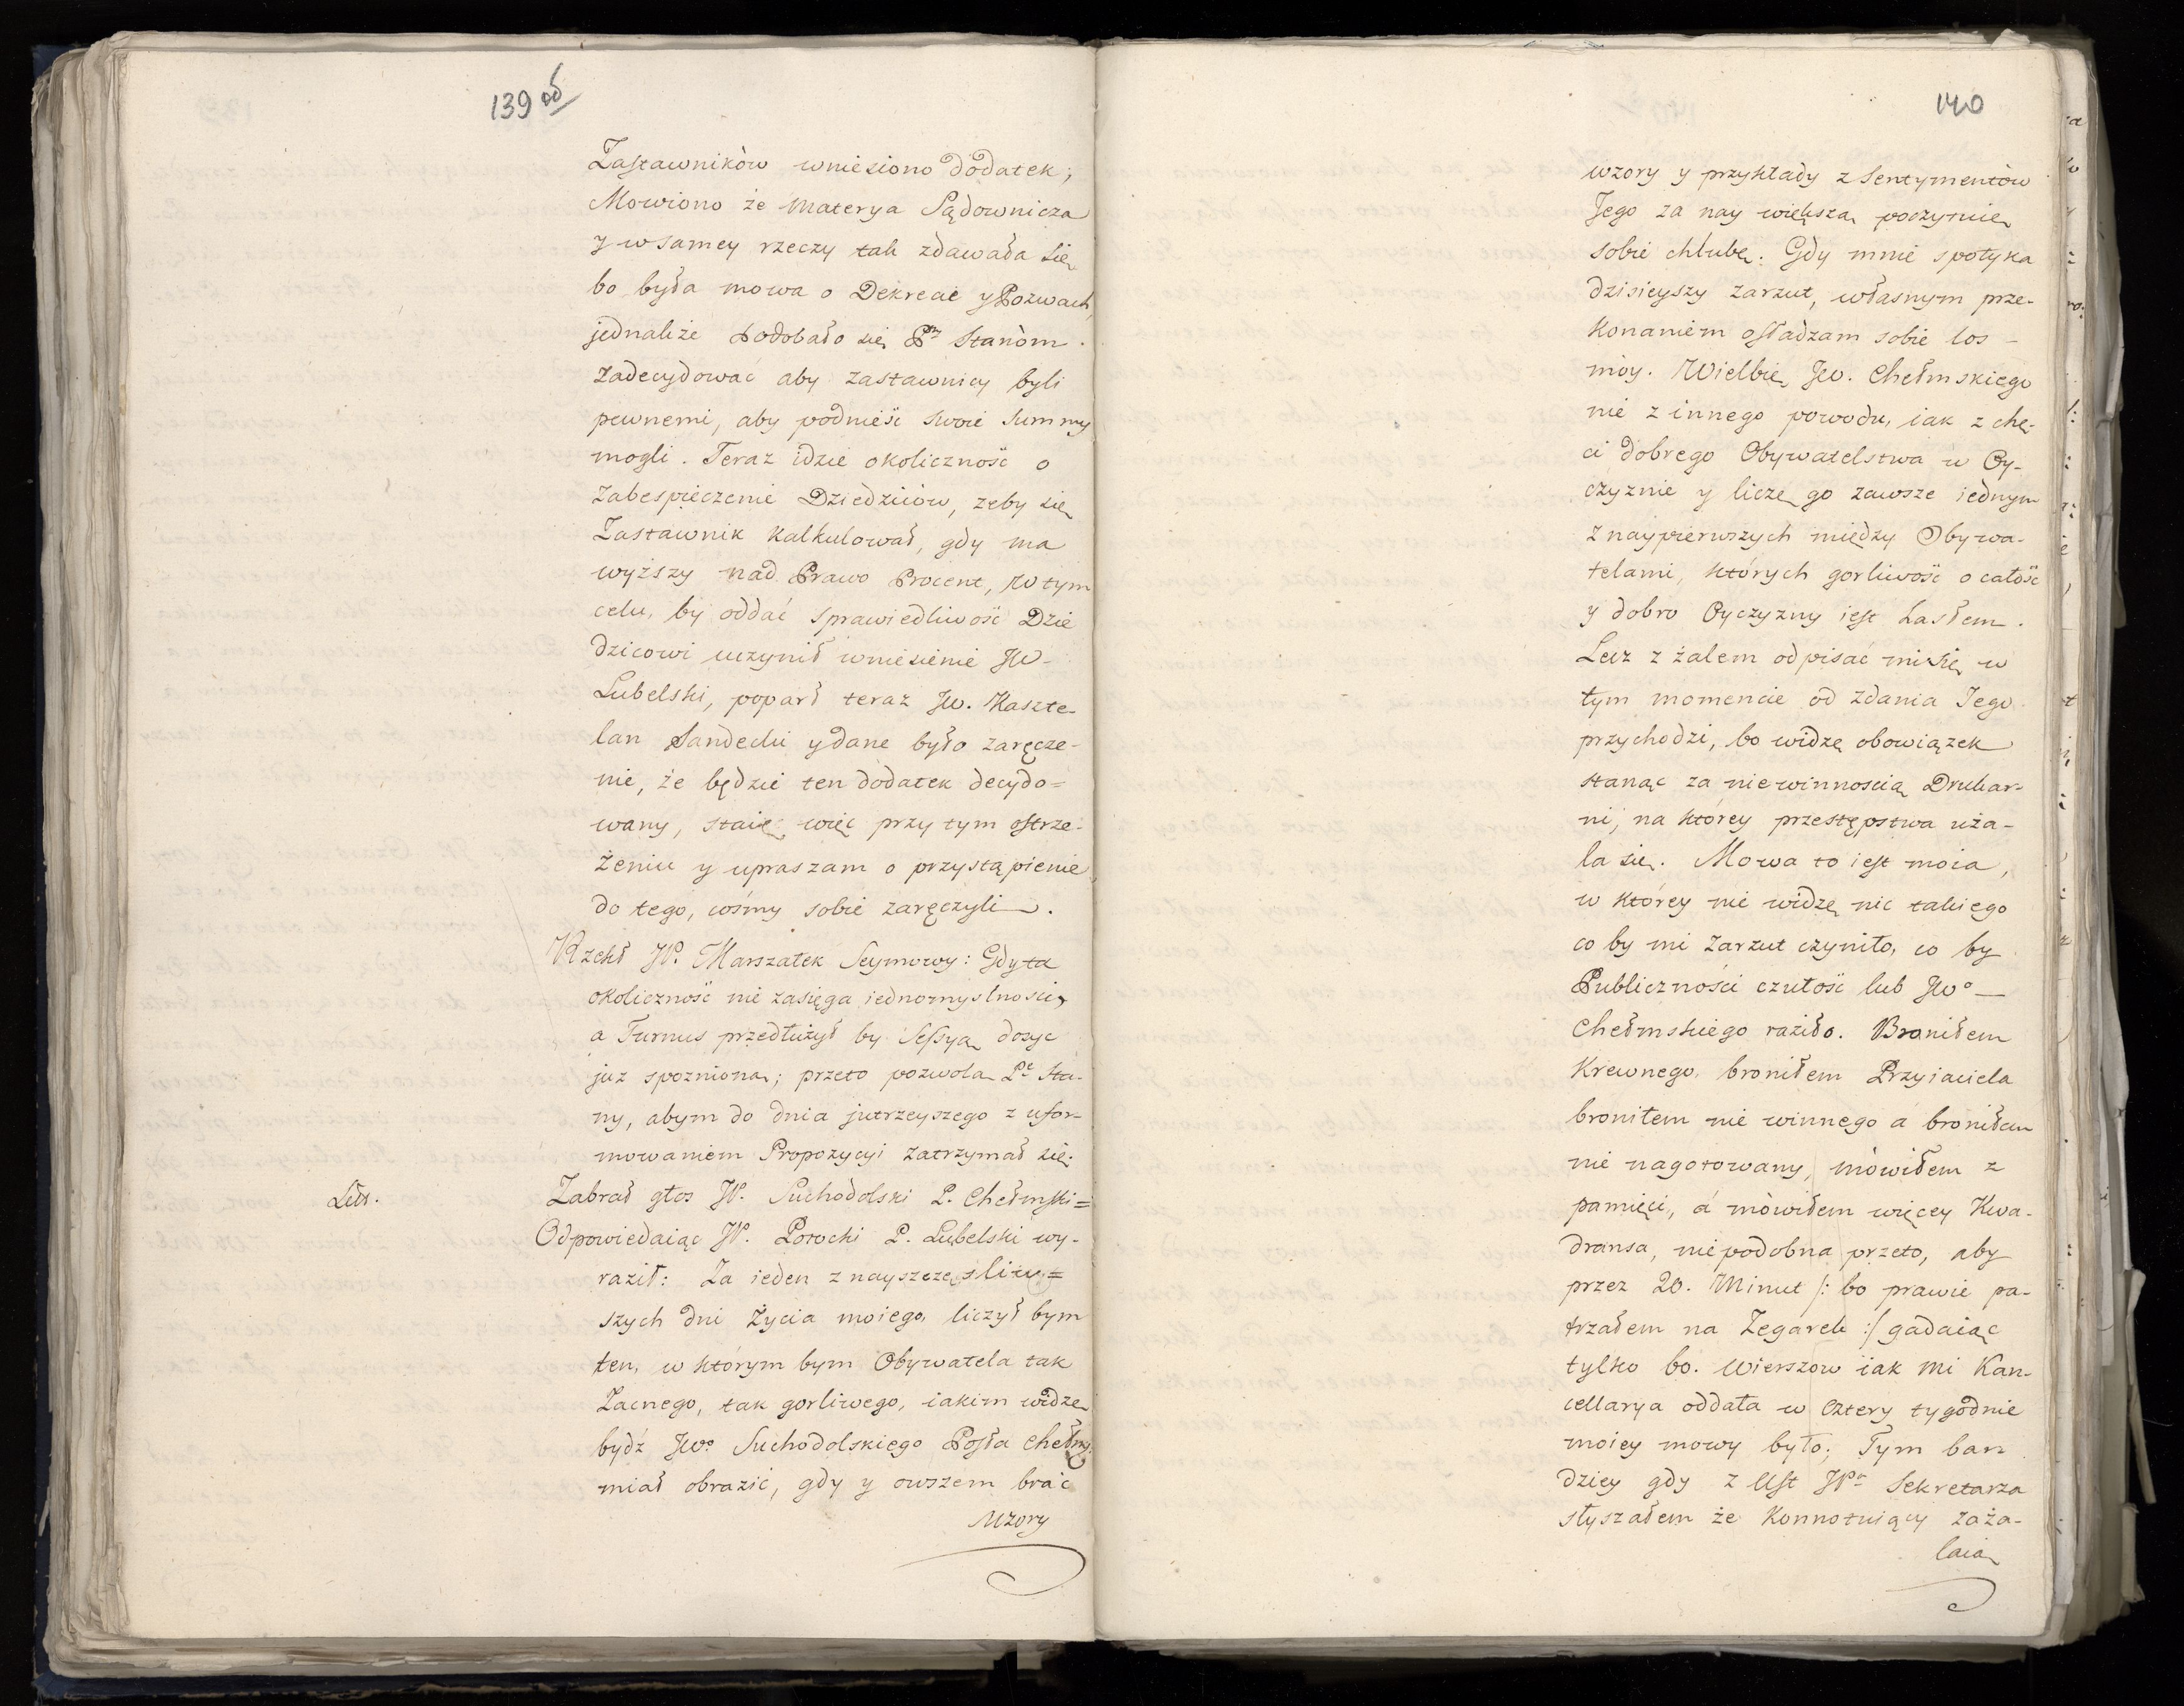 139 об
Zastawnikòw wniesiono dodatek;
Mowiono że Materya Sądownicza
y w samey rzeczy tak zdawała się
bo była mowa o Dekrecie y Pozwach,
jednakże podobało się Pn Stanòm.
zadecydować aby zastawnicy byli
pewnemi, aby podnieść swoie Summy
mogli. Teraz idzie okoliczność o
zabespieczenie Dziedziców, żeby się
Zastawnik kalkulował, gdy ma
wyższy nad Prawo Procent, w tym
celu, by oddać sprawiedliwość Dzie
dzicowi uczynił wniesienie JW-
Lubelski, poparł teraz JW. Kaszte-
lan Sandecki y dane było zaręcze-
nie, że będzie ten dodatek decydo=
wany, staię więc przy tym ostrze-
żeniu y upraszam o przystąpienie
do tego, cośmy sobie zaręczyli.
Rzekł JP. Marszałek Seymowy: Gdy ta
okoliczność nie zasięga iednomyslności,
a Turnus przedłużył by Sessyą dosyc
już spoznioną; przeto pozwolą Pe Sta-
ny, abym do dnia jutrzeyszego z ufor-
mowaniem Propozycyi zatrzymał się.
Lit.
Zabrał głos JP. Suchodolski P. Chełmski=
Odpowiedaiąc JP. Potocki P. Lubelski wy-
raził: Za ieden z nayszczęsliw=
szych dni życia moiego, liczył bym
ten, w którym bym Obywatela tak
Zacnego, tak gorliwego, iakim widzę
bydź JWo Suchodolskiego Posła chełms:
miał obrazić, gdy y owszem brać
wzory
140
wzory y przykłady z Sentymentòw
Jego za nay większą poczynię
sobie chlubę. Gdy mnie spotyka
dzisieyszy zarzut, własnym prze-
konaniem osładzam sobie los -
móy. Wielbię JW. Chełmskiego
nie z innego powodu, iak z chę-
ci dobrego Obywatelstwa w Oy-
czyznie y liczę go zawsze iednym
z naypierwszych między Obywa-
telami, których gorliwość o całość
y dobro Oyczyzny iest hasłem.
Lecz z żalem odpisać mi się w
tym momencie od zdania Jego
przychodzi, bo widzę obowiązek
stanąć za niewinnością Drukar-
ni, na którey przestępstwa uża-
la się. Mowa to iest moia,
w którey nie widzę nic takiego
co by mi zarzut czyniło, co by
Publiczności czułość lub JWo —
Chełmskiego raziło. Broniłem
Krewnego, broniłem Przyiaciela
broniłem nie winnego a broniłem
nie nagotowany, mówiłem z
pamięci, á mòwiłem więcey Kwa-
dransa, nie podobna przeto, aby
przez 20. Minut /: bo prawie pa-
trzałem na Zegarek :/ gadaiąc
tylko 60. Wierszow iak mi Kan-
cellarya oddała w cztery tygodnie
moiey mowy było; Tym bar
dziey gdy z Ust JPa Sekretarza
słyszałem że Konnotuiący zaża-
laią